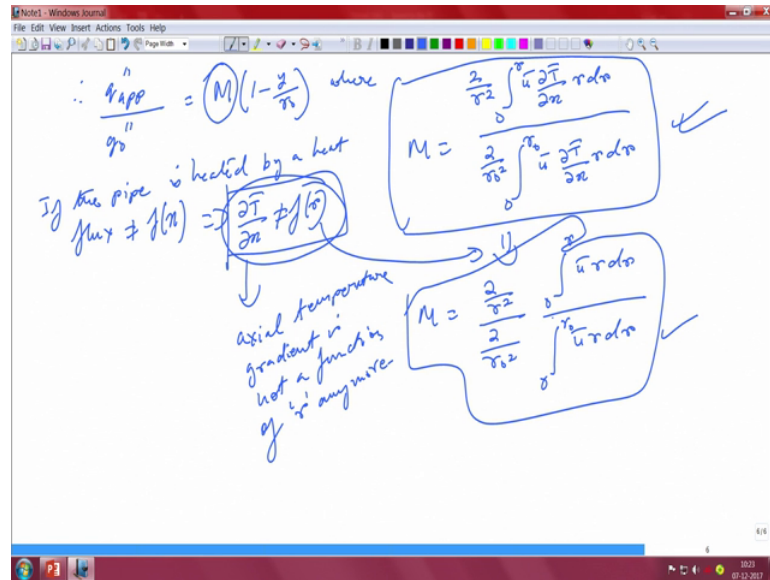 Note1 - Windows Journal
File Edit View Insert Actions Tools Help
Page Width
∴ q"app / q"0 = M (1 - y/r0) where
M = 2/r² ∫0^r ū ∂T̄/∂x r dr / 2/r0² ∫0^r0 ū ∂T̄/∂x r dr
If the pipe is heated by a heat
flux ≠ f(x) => ∂T̄/∂x ≠ f(r)
axial temperature
gradient is
not a function
of 'r' anymore.
M = 2/r² / 2/r0² ∫0^r ū r dr / ∫0^r0 ū r dr
6/6
6
10:23
07-12-2017